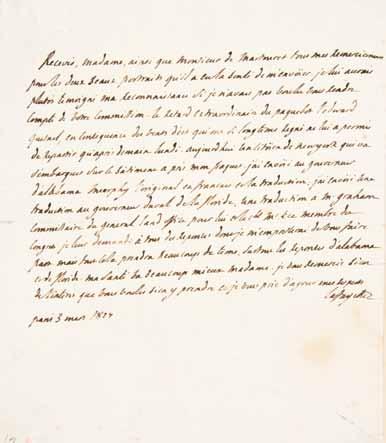 Recevés, madame, ainsi que monsieur de Masneret tous mes remerciemens
pour les deux beaux portraits qu'il a eu la bonté de m'envoïer je lui aurois
plutot temoigné ma reconnaissance si je n'avais pas voulu vous rendre
compte de votre commission. le retard extraordinaire du paquebot l'edward
en consequence des vents d'est qui ont si longtems regné ne lui a permis
de repartir qu'apres demain lundi. aujourdhui un citoïen de newyork qui va
s'embarquer sur le bâtiment a pris mon paquet. j'ai envoié au gouverneur
d'alabama murphy l'original en francais et la traduction. j'ai envoié une
traduction au gouverneur duval de la floride, une traduction a mr graham
commissaire du general land office pour lui et le mr membre du
congrès je leur demande à tous des reponses dont je m'empresserai de vous faire
part mais tout cela prendra beaucoup de tems, surtout les reponses d'alabama
et de floride. ma santé va beaucoup mieux madame, je vous remercie bien
de l'intérêt que vous voulés bien y prendre et je vous prie d'agréer mes respects
lafayette
paris 3 mars 1827